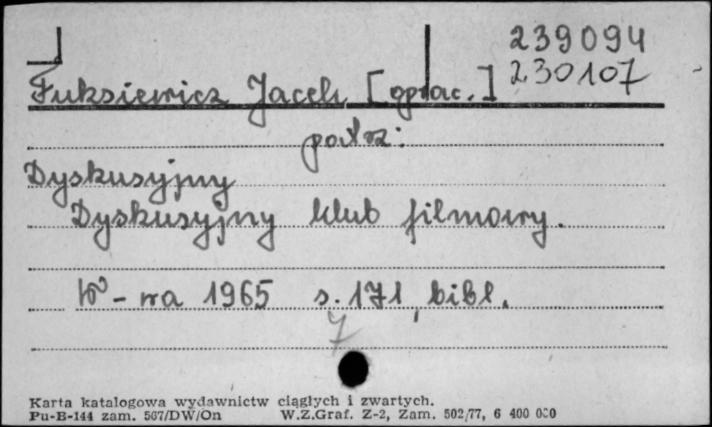 239094
Fuksiewicz Jacek [oprac.] 230107
patrz:
Dyskusyjny
Dyskusyjny klub filmowy.
W-wa 1965 s. 171, bibl.
7
Karta katalogowa wydawnictw ciągłych i zwartych.
Pu-B-144 zam. 567/DW/On W.Z.Graf. Z-2, Zam. 502/77, 6 400 000